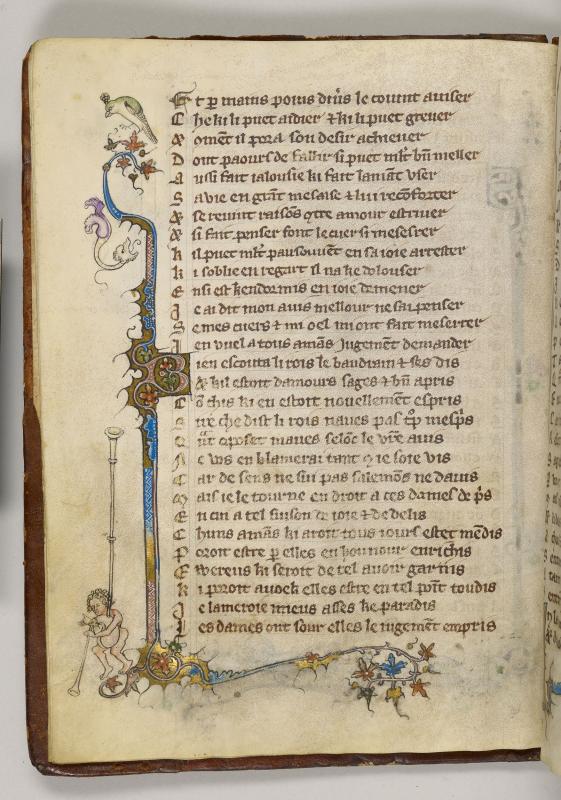 Et p mains poins diu͛s le couint auiser
Che ki li puet aidier ⁊ ki li puet greuer
⁊ om̃ent il pora son desir achieuer
Dont paours de fallir si puet ml̃t bñ meller
Aussi fait ialousie ki fait lamãt vser
Sa vie en grãt mesaise ⁊ lui recõforter
⁊ se reuint raisõs ꝯtre amour estriuer
⁊ si fait penser font le cuer si mesesrer
kil puet ml̃t pau souuẽt en sa ioie arrester
ki soblie en regart il na ke dolouser
Ensi est kendormis en ioie demener
Je ai dit mon auis mellour ne sai penser
Se mes cuers ⁊ mi oel mi ont fait meserrer
Jen vuel a tous amãs jugemẽt demander
Bien escouta li rois le bauduain ⁊ ses dis
⁊ kil estoit damours sages ⁊ bñ apris
Cõ chis ki en estoit nouellemẽt espris
che dist li rois naues pas tp̃ mesp̃s
ꝯposet maues selõc le vr̃e auis
Ne vos en blamerai tant ꝯ ie soie vis
Car de sens ne sui pas salemõs ne dauis
Mais ie le tourne en droit a ces dames de p̃s
En cui a tel fuison de ioie ⁊ de delis
Chuns amãs ki aroit tous iours estet mẽdis
Poroit estre p elles en honnour enrichis
Ewereus ki seroit de tel auoir garnis
ki proit auoek elles estre en tel poĩt toudis
Je lameroie mieus asses ke paradis
Les dames ont sour elles le iugemẽt empris